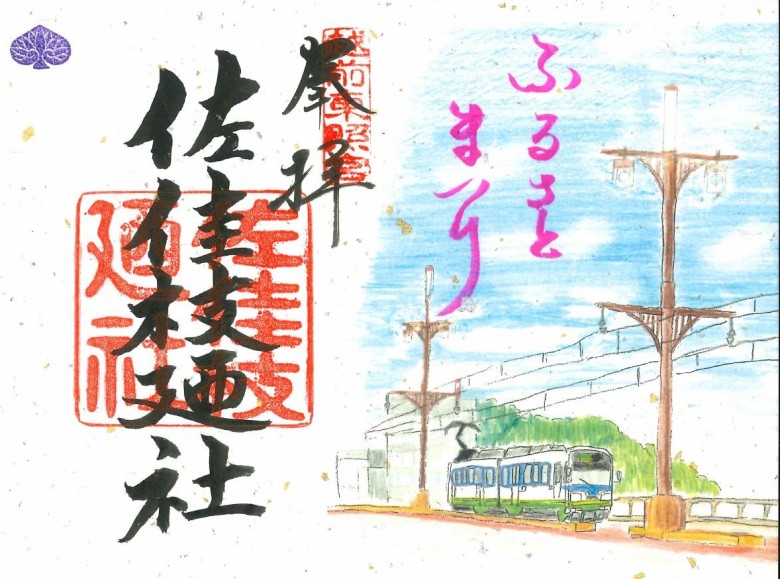 ふるさと
まつり
奉拝
越前東照宮
佐佳枝廼社
佐佳枝
廼社